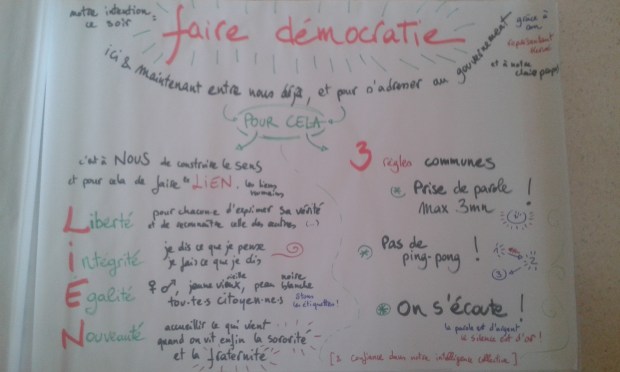 notre intention :
ce soir
faire démocratie
grâce à
son
représentant
et à notre
ici & maintenant entre nous déjà, et pour s'adresser au gouvernement
POUR CELA
c'est à NOUS de construire le sens
et pour cela de faire LIEN, les liens
humains
Liberté pour chacun.e d'exprimer sa vérité
et de reconnaître celle des autres (...)
Intégrité je dis ce que je pense
je fais ce que je dis
Egalité ♀ ♂, jeune vieux, peau noire
blanche
tou·tes citoyen·nes
étiquettes !
Nouveauté accueillir ce qui vient
quand on vit enfin la sororité
et la fraternité
3 règles communes
Prise de parole !
Max 3mn
Pas de !
ping-pong
1
2
3
On s'écoute !
la parole est d'argent
le silence est d'or !
[3. Confiance dans notre intelligence collective]